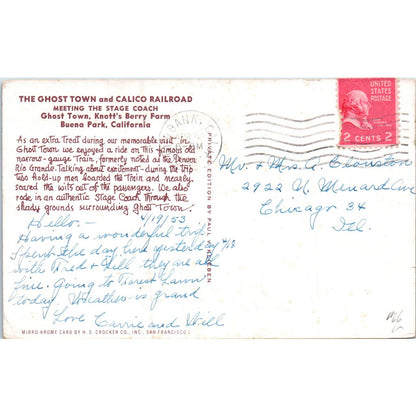 THE GHOST TOWN and CALICO RAILROAD
MEETING THE STAGE COACH
Ghost Town, Knott's Berry Farm
Buena Park, California
As an extra treat during our memorable visit in
Ghost Town we enjoyed a ride on this famous old
narrow-gauge Train, formerly noted as the Denver
Rio Grande. Talking about excitement - during the trip
two Hold-up men boarded the Train and nearly
scared the wits out of the passengers. We also
rode in an authentic Stage Coach through the
shady grounds surrounding Ghost Town.
Hello - 4/19/53
Having a wonderful trip.
Spent the day here yesterday 4/18
with Fred + Nell. they are all
fine. Going to Forest Lawn
today. Weather is grand
Love Carrie and Will
MIRRO-KROME CARD BY H. S. CROCKER CO., INC., SAN FRANCISCO 1
PRIVATE EDITION BY PAUL
BANK
UNITED
STATES
POSTAGE
2 CENTS 2
Mr. + Mrs. A. Clouston
2922 N Menard Ave
Chicago 34
Ill.